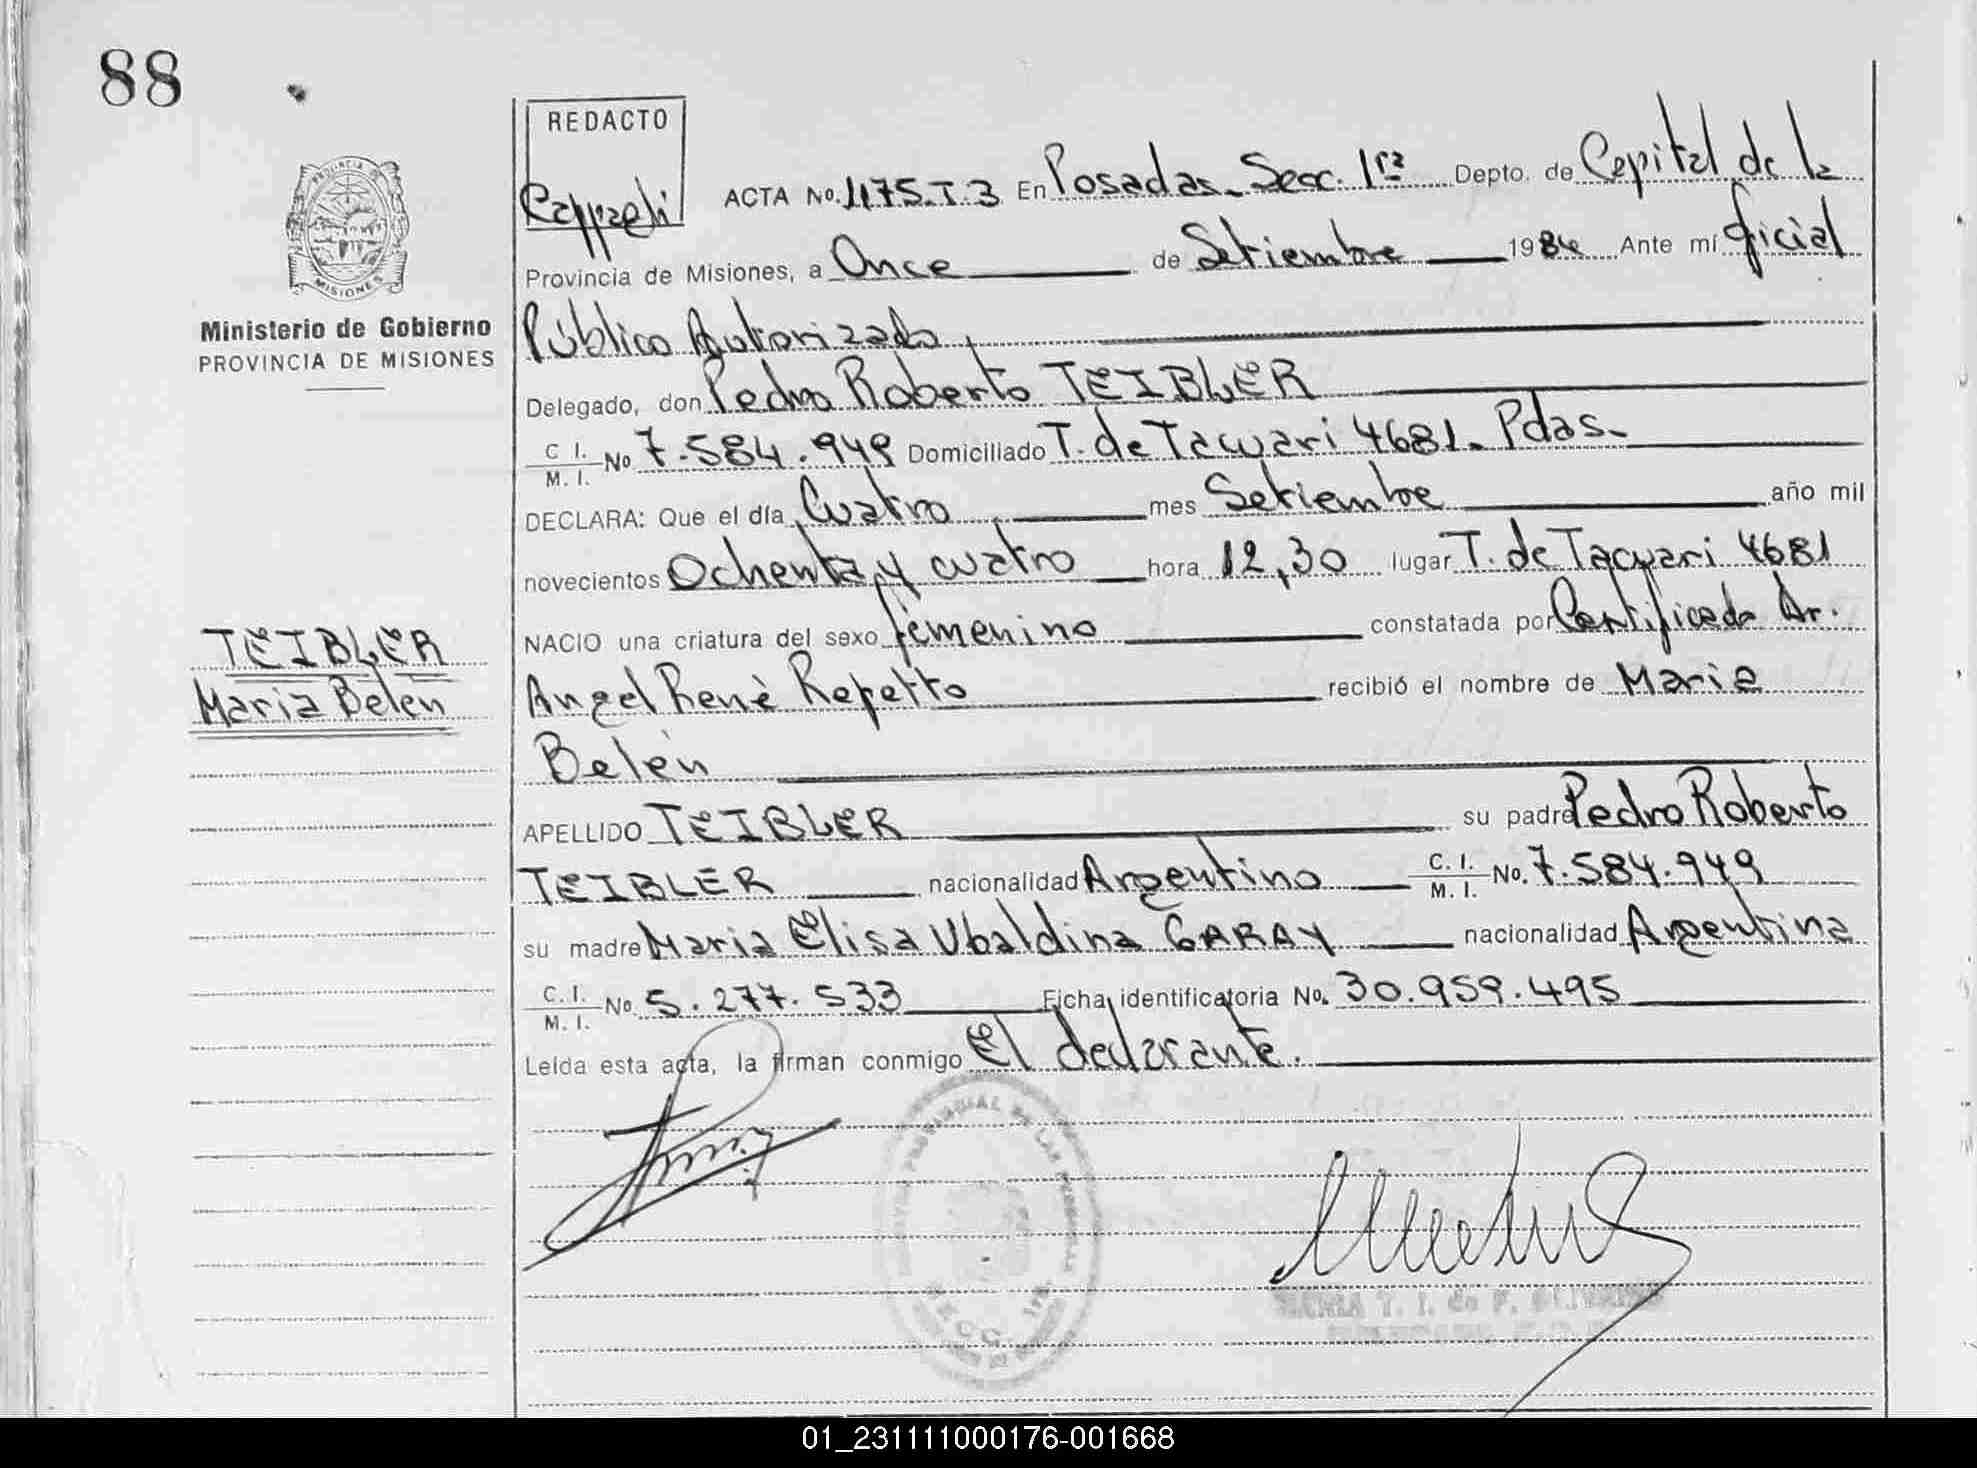 88
REDACTO
ACTA No. 1175.T.3 En Posadas. Secc. 1ra Depto. de Capital de la
Provincia de Misiones, a Once de Setiembre 1984 Ante mí Oficial
Público Autorizado
Delegado, don Pedro Roberto TEIBLER
C. I. M. I. No 7.584.949 Domiciliado T. de Tacuari 4681. Pdas.
DECLARA: Que el día Cuatro mes Setiembre año mil
novecientos Ochenta y cuatro hora 12,30 lugar T. de Tacuari 4681
NACIO una criatura del sexo femenino constatada por Certificado Dr.
Angel René Repetto recibió el nombre de Maria
Belén
APELLIDO TEIBLER su padre Pedro Roberto
TEIBLER nacionalidad Argentino C. I. M. I. No. 7.584.949
su madre Maria Elisa Ubaldina GARAY nacionalidad Argentina
C. I. M. I. No. 5.277.533 Ficha identificatoria No. 30.959.495
Leída esta acta, la firman conmigo El declarante.
PROVINCIA DE
MISIONES
Ministerio de Gobierno
PROVINCIA DE MISIONES
TEIBLER
Maria Belén
PROVINCIAL DE LAS PERSONAS
SECC. 1ra
MARIA T. I. de F.
01_231111000176-001668